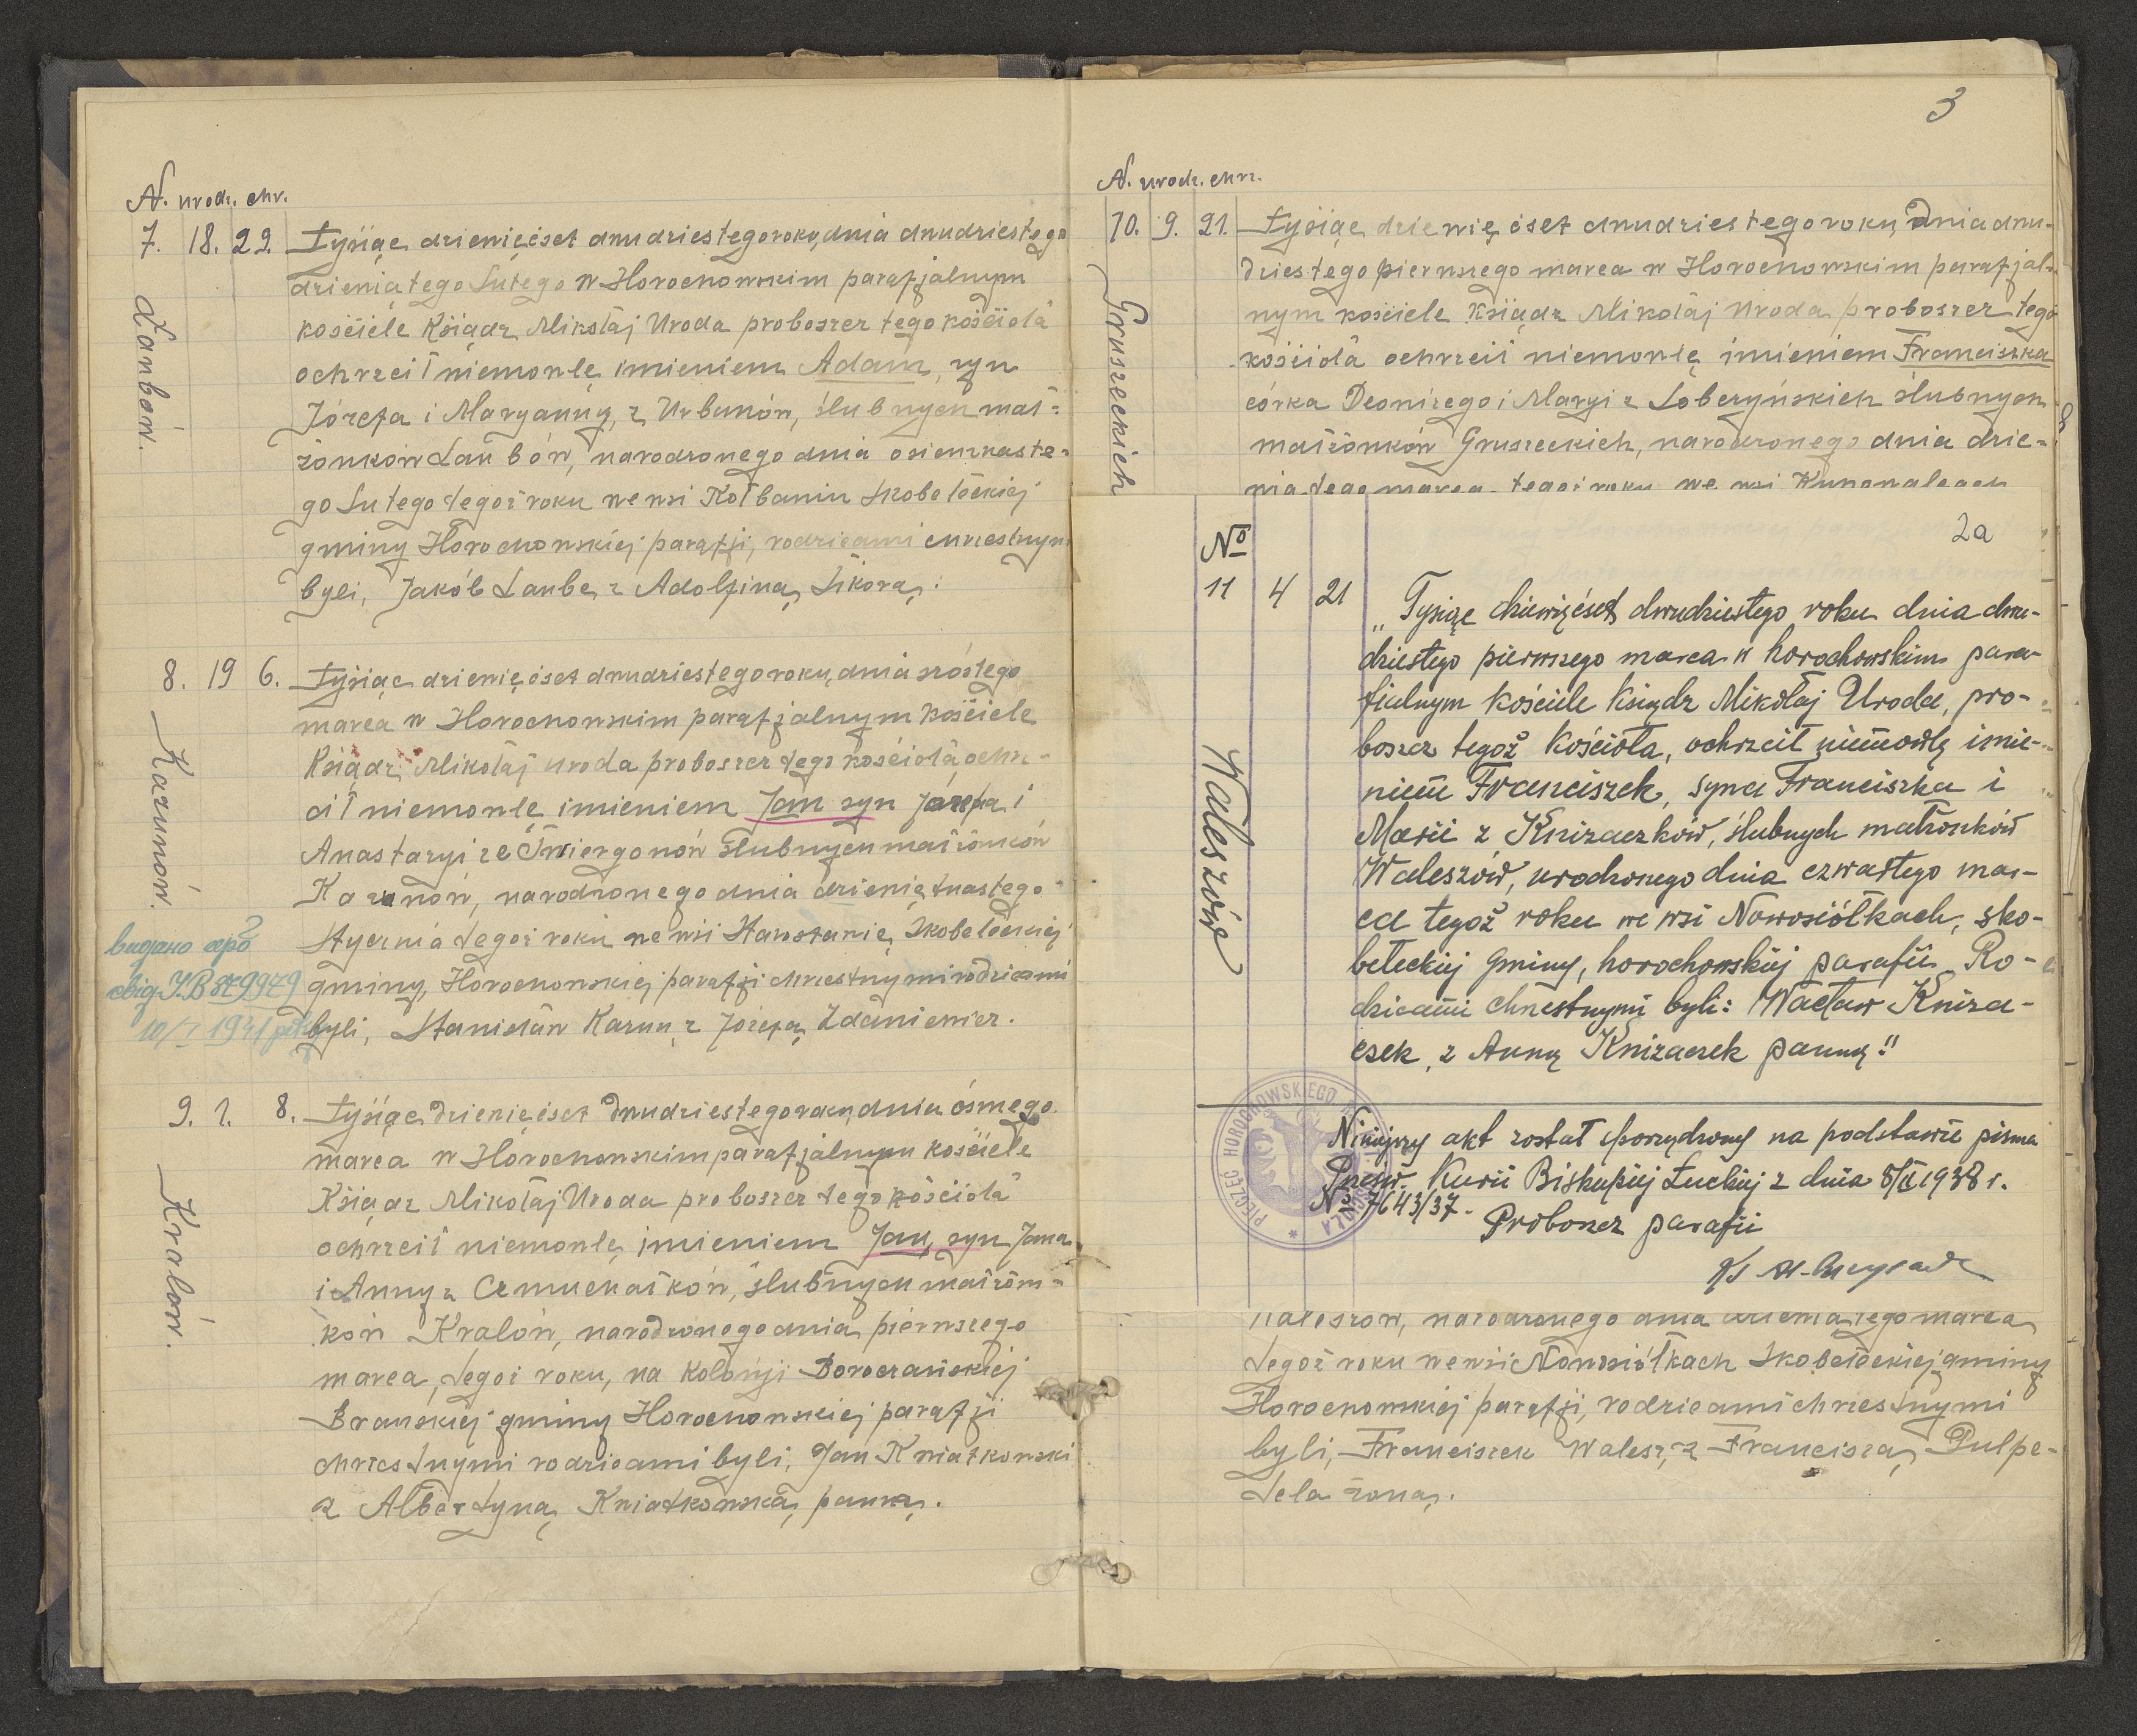 N. urodz. chr.
7. 18. 29. Tysiąc dziewięćset dwudziestego roku, dnia dwudziestego
dziewiątego Lutego w Horochowskim parafjalnym
kościele Ksiądz Mikołaj Uroda proboszcz tego kościoła
ochrzcił niemowlę imieniem Adam, syn
Józefa i Maryanny, z Urbanów, ślubnych mał=
żonków Laubów, narodzonego dnia osiemnaste=
go Lutego tegoż roku we wsi Kołbaniu Skobełeckiej
gminy Horochowskiej parafji, rodzicami chrzestnymi
byli, Jakób Laube, z Adolfiną Sikorą.
Laubów.
8. 19 6. Tysiąc dziewięćset dwudziestego roku, dnia szóstego
marca w Horochowskim parafjalnym kościele
Ksiądz Mikołaj Uroda proboszcz tego kościoła, ochrz-
cił niemowlę imieniem Jan syn Józefa i
Anastazyi ze Świergonów ślubnych małżonków
Kazunów, narodzonego dnia dziewiętnastego
Stycznia tegoż roku we wsi Stawstawie, Skobełeckiej
gminy, Horochowskiej parafji chrzestnymi rodzicami
byli, Stanisław Kazun, z Józefą Zdaniewicz.
Kazunów.
видано
10/I 1941
9. 1. 8. Tysiąc dziewięćset dwudziestego roku, dnia ósmego
marca w Horochowskim parafjalnym kościele
Ksiądz Mikołaj Uroda proboszcz tego kościoła
ochrzcił niemowlę imieniem Jan, syn Jana
i Anny z Czmuchałków, ślubnych małżon=
ków Kralów, narodzonego dnia pierwszego
marca, tegoż roku, na Kolonji Boroczańskiej
Brańskiej gminy Horochowskiej parafji
chrzestnymi rodzicami byli, Jan Kwiatkowski
z Albertyną Kwiatkowską panną.
Kralów.
3
N. urodz. chrz.
10. 9. 21. Tysiąc dziewięćset dwudziestego roku, Dnia dwu-
dziestego pierwszego marca w Horochowskim parafjal=
nym kościele Ksiądz Mikołaj Uroda proboszcz tego
kościoła ochrzcił niemowlę imieniem Franciszka
córka Deonizego i Maryi z Soberyńskich ślubnych
małżonków Gruszeckich, narodzonego dnia dzie=
wiątego marca tegoż roku we wsi
Gruszeckich
2a
№
11 4 21 „Tysiąc dziewięćset dwudziestego roku dnia dwu-
dziestego pierwszego marca w horochowskim para-
fialnym kościele ksiądz Mikołaj Uroda, pro-
boszcz tegoż kościoła, ochrzcił niemowlę imie-
niem Franciszek, syna Franciszka i
Marii z Knizaczków, ślubnych małżonków
Waleszów, urodzonego dnia czwartego mar-
ca tegoż roku we wsi Nowosiółkach, sko-
beleckiej gminy, horochowskiej parafii. Ro-
dzicami chrzestnymi byli: Wacław Kniza-
czek, z Anną Knizaczek panną."
Waleszów
Niniejszy akt został sporządzony na podstawie pisma
Prześw. Kurii Biskupiej Łuckiej z dnia 8/II 1938 r.
№ 7643/37. Proboszcz parafii
PIECZĘĆ HOROCHOWSKIEGO KOŚCIOŁA
Waleszów, narodzonego dnia dziewiątego marca
tegoż roku we wsi Nowosiółkach Skobełeckiej gminy
Horochowskiej parafji, rodzicami chrzestnymi
byli, Franciszek Walesz, z Franciszą Pulpe-
tela żoną.